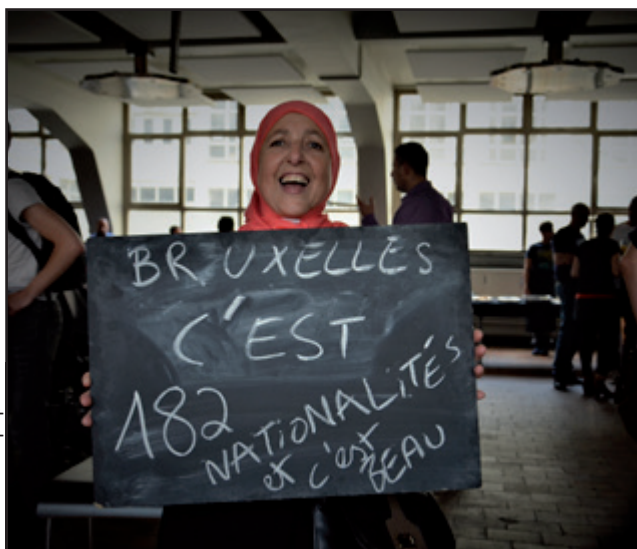 BRUXELLES
C'EST
182
NATIONALITÉS
et c'est
BEAU